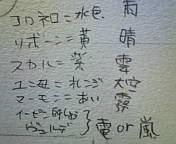 コロネロ=水色 雨
リボーン=黄 晴
スカル=紫 雲
ユニ母=オレンジ 大空
マーモン=あい 霧
イーピン師匠
ヴェルデ
雷or嵐